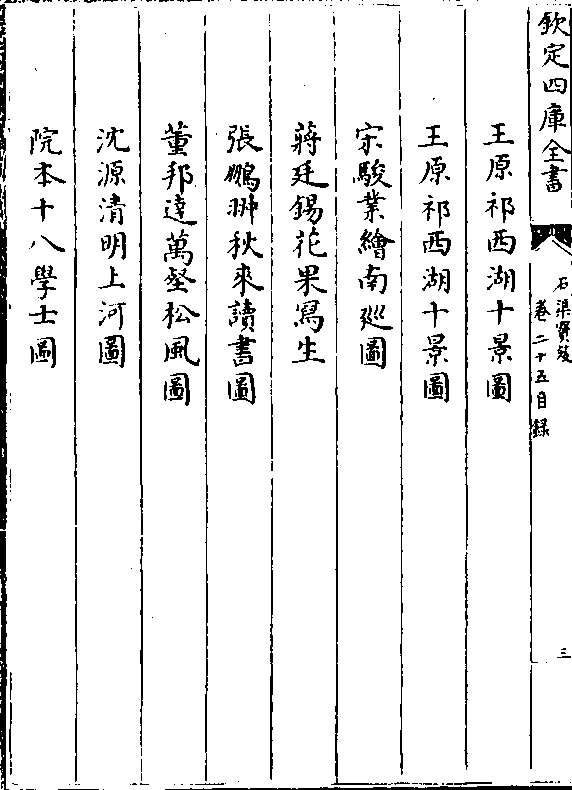 欽定四庫全書
石渠寶笈
卷二十五目錄
三
王原祁西湖十景圖
王原祁西湖十景圖
宋駿業繪南廵圖
蔣廷錫花果寫生
張鵬翀秋來讀書圖
董邦達萬壑松風圖
沈源清明上河圖
院本十八學士圖